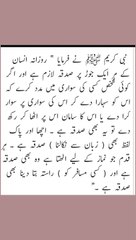 نبی کریم ﷺ نے فرمایا " روزانہ انسان
کے ہر ایک جوڑ پر صدقہ لازم ہے اور اگر
کوئی شخص کسی کی سواری میں مدد کرے کہ
اس کو سہارا دے کر اس کی سواری پر سوار
کرا دے یا اس کا سامان اس پر اٹھا کر رکھ
دے تو یہ بھی صدقہ ہے ۔ اچھا اور پاک
لفظ بھی ( زبان سے نکالنا ) صدقہ ہے ۔ ہر
قدم جو نماز کے لیے اٹھتا ہے وہ بھی صدقہ
ہے اور ( کسی مسافر کو ) راستہ بتا دینا بھی
صدقہ ہے ۔"